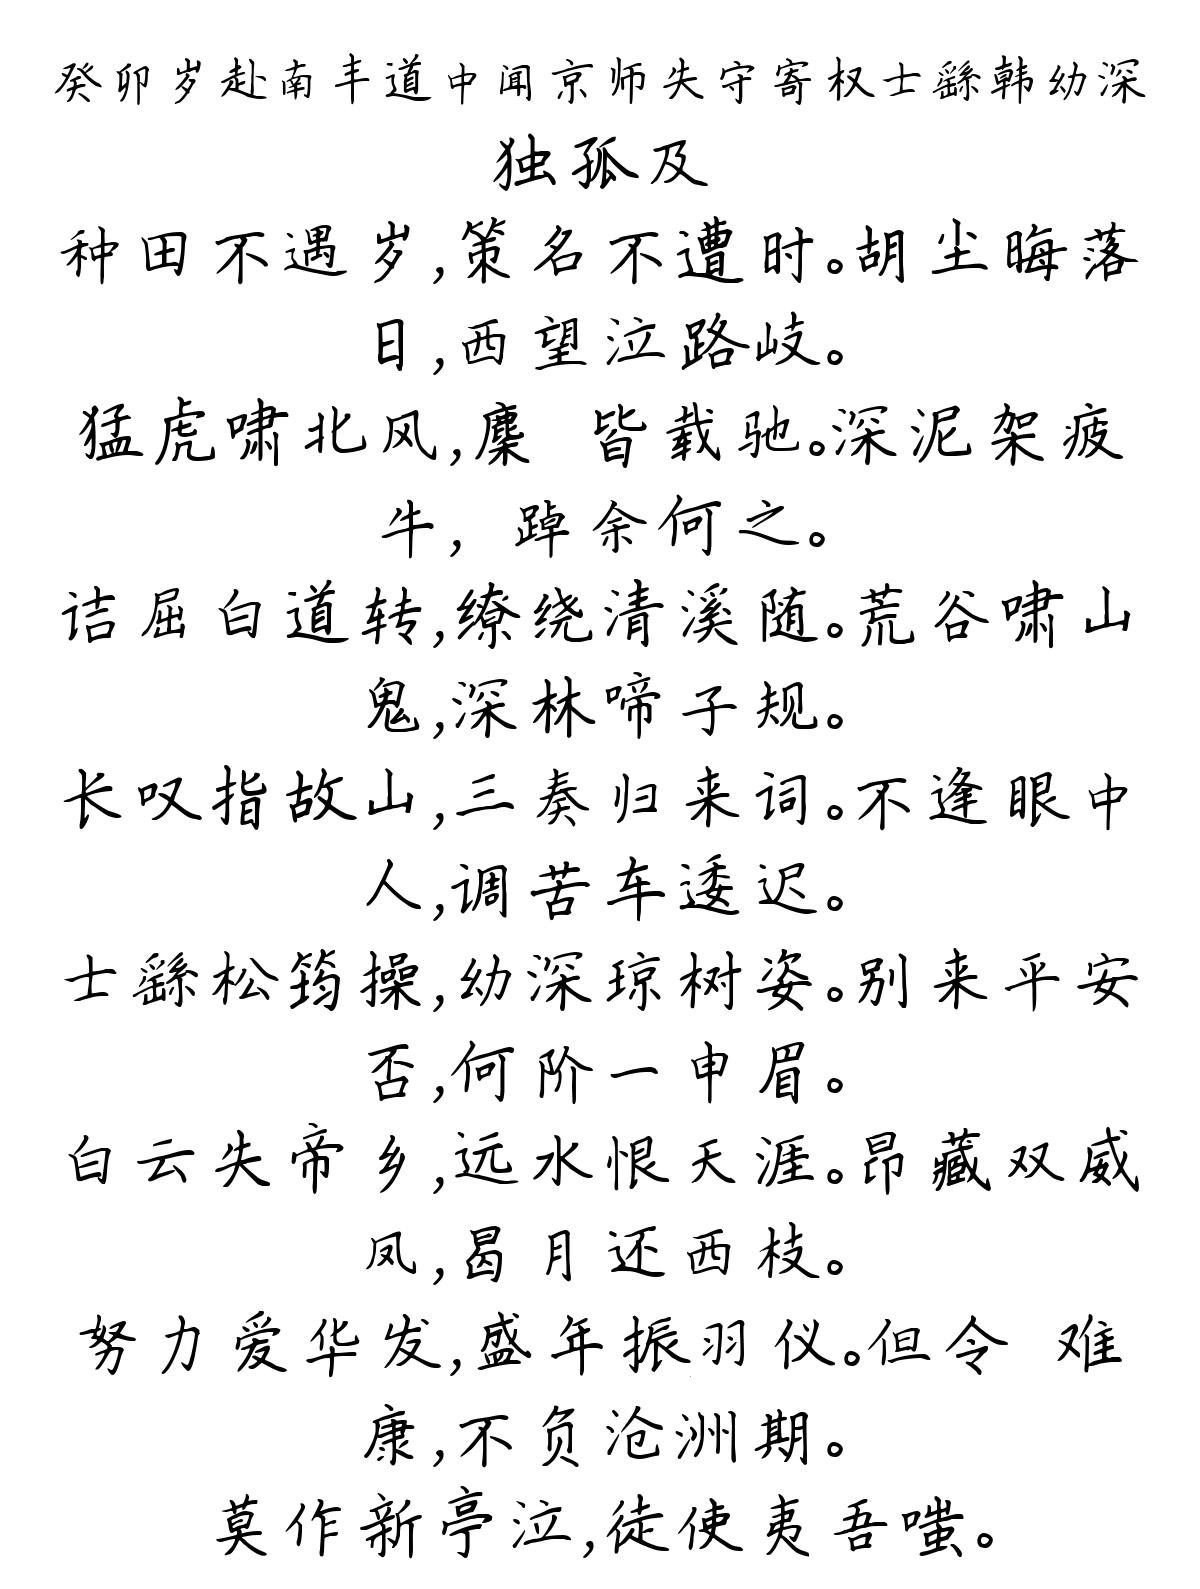 癸卯岁赴南丰道中闻京师失守寄权士繇韩幼深
独孤及
种田不遇岁,策名不遭时。胡尘晦落
日,西望泣路岐。
猛虎啸北风,麇 皆载驰。深泥架疲
牛, 踔余何之。
诘屈白道转,缭绕清溪随。荒谷啸山
鬼,深林啼子规。
长叹指故山,三奏归来词。不逢眼中
人,调苦车逶迟。
士繇松筠操,幼深琼树姿。别来平安
否,何阶一申眉。
白云失帝乡,远水恨天涯。昂藏双威
凤,曷月还西枝。
努力爱华发,盛年振羽仪。但令 难
康,不负沧洲期。
莫作新亭泣,徒使夷吾嗤。